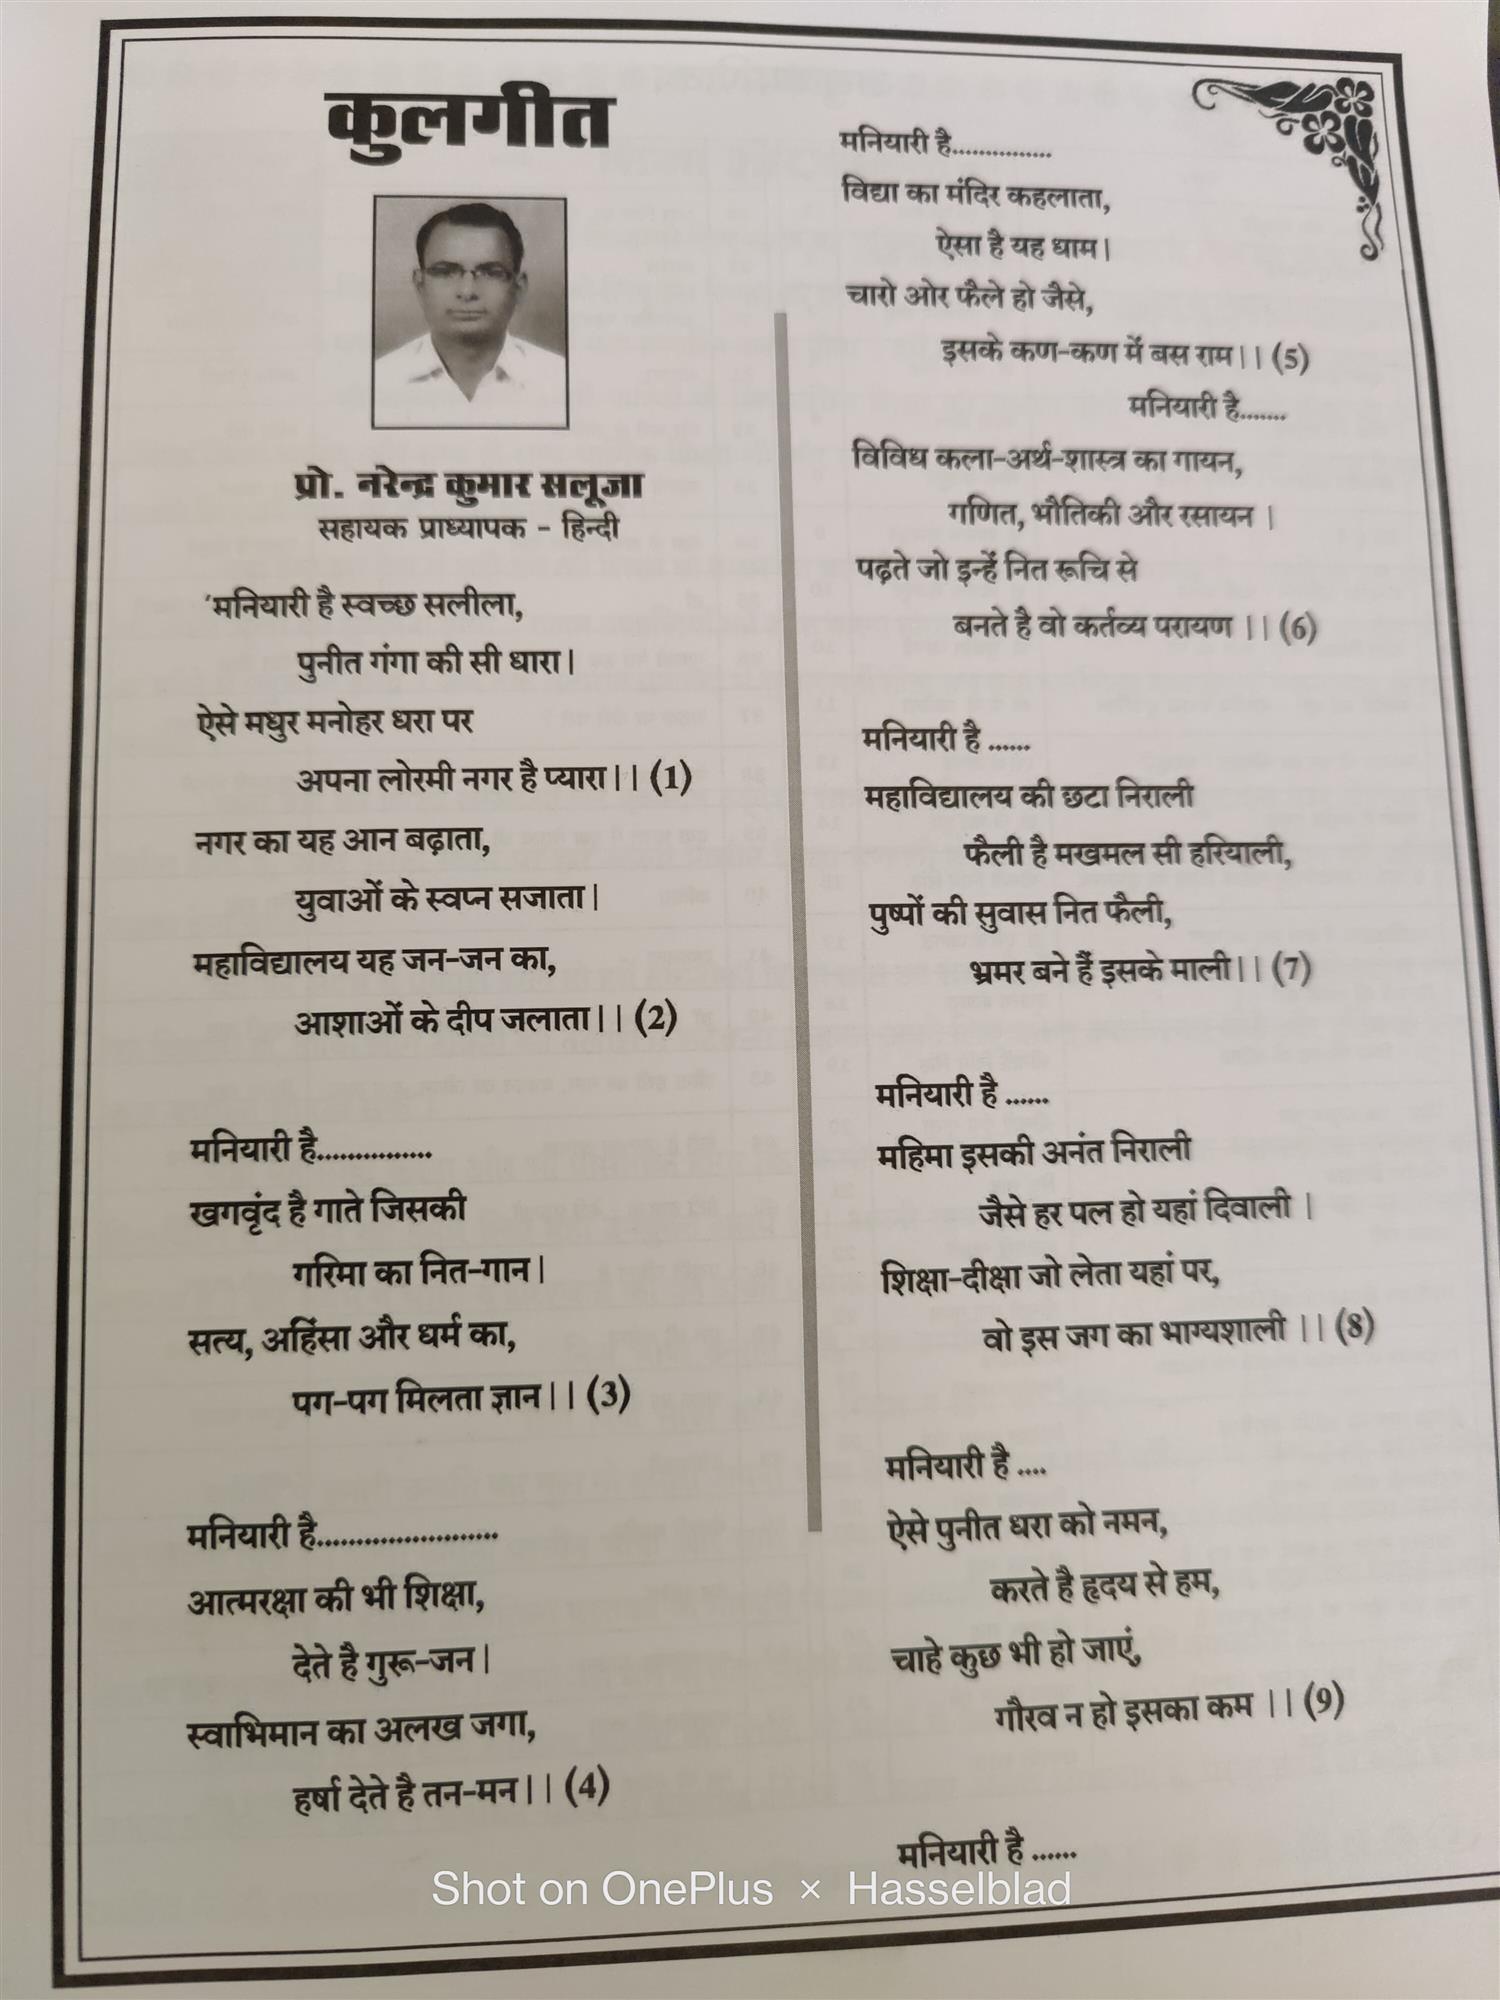 कुलगीत
प्रो. नरेन्द्र कुमार सलूजा
सहायक प्राध्यापक - हिन्दी
'मनियारी है स्वच्छ सलीला,
पुनीत गंगा की सी धारा।
ऐसे मधुर मनोहर धरा पर
अपना लोरमी नगर है प्यारा।। (1)
नगर का यह आन बढ़ाता,
युवाओं के स्वप्न सजाता।
महाविद्यालय यह जन-जन का,
आशाओं के दीप जलाता।। (2)
मनियारी है...............
खगवृंद है गाते जिसकी
गरिमा का नित-गान।
सत्य, अहिंसा और धर्म का,
पग-पग मिलता ज्ञान।। (3)
मनियारी है.......................
आत्मरक्षा की भी शिक्षा,
देते है गुरू-जन।
स्वाभिमान का अलख जगा,
हर्षा देते है तन-मन।। (4)
मनियारी है...............
विद्या का मंदिर कहलाता,
ऐसा है यह धाम।
चारो ओर फैले हो जैसे,
इसके कण-कण में बस राम।। (5)
मनियारी है.......
विविध कला-अर्थ-शास्त्र का गायन,
गणित, भौतिकी और रसायन ।
पढ़ते जो इन्हें नित रूचि से
बनते है वो कर्तव्य परायण ।। (6)
मनियारी है ......
महाविद्यालय की छटा निराली
फैली है मखमल सी हरियाली,
पुष्पों की सुवास नित फैली,
भ्रमर बने हैं इसके माली।। (7)
मनियारी है ......
महिमा इसकी अनंत निराली
जैसे हर पल हो यहां दिवाली ।
शिक्षा-दीक्षा जो लेता यहां पर,
वो इस जग का भाग्यशाली ।। (8)
मनियारी है ....
ऐसे पुनीत धरा को नमन,
करते है हृदय से हम,
चाहे कुछ भी हो जाएं,
गौरव न हो इसका कम ।। (9)
मनियारी है ......
Shot on OnePlus × Hasselblad